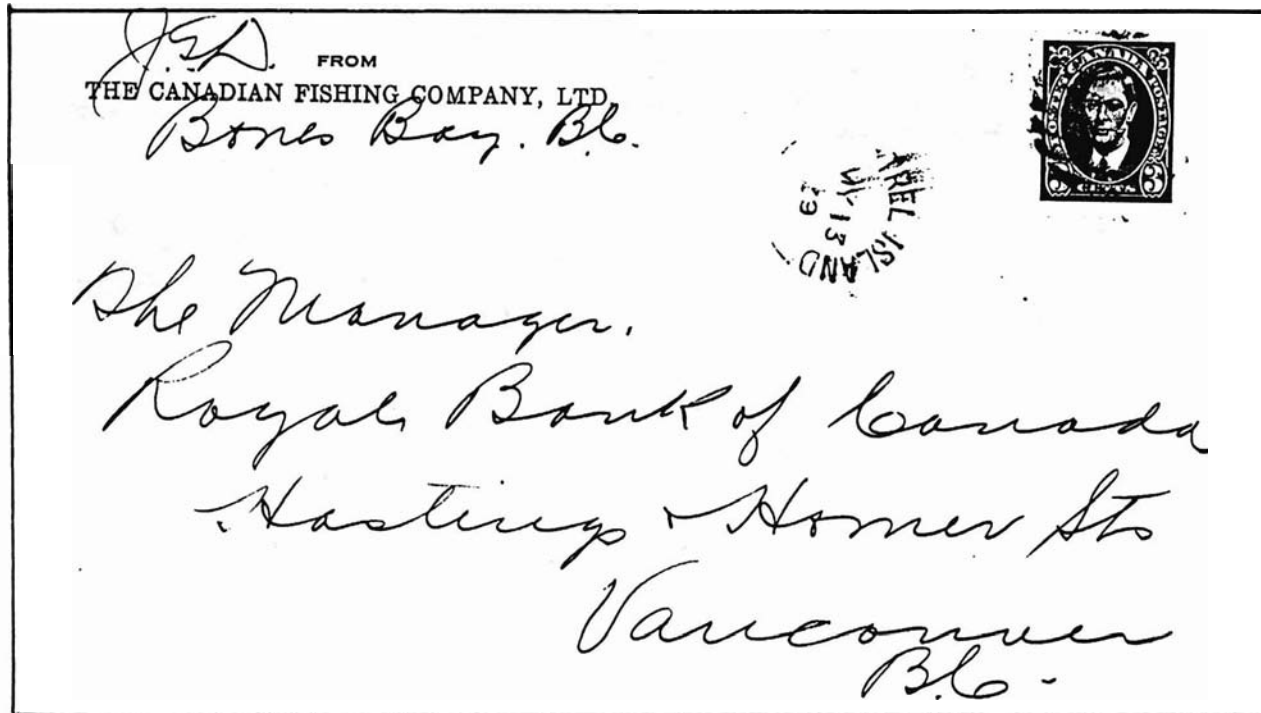 J.E.D.
FROM
THE CANADIAN FISHING COMPANY, LTD.
Bones Bay. B.C.
POSTES CANADA POSTAGE
3 CENTS 3
AREL ISLAND
13
The Manager.
Royal Bank of Canada
Hastings & Homer Sts
Vancouver
B.C.